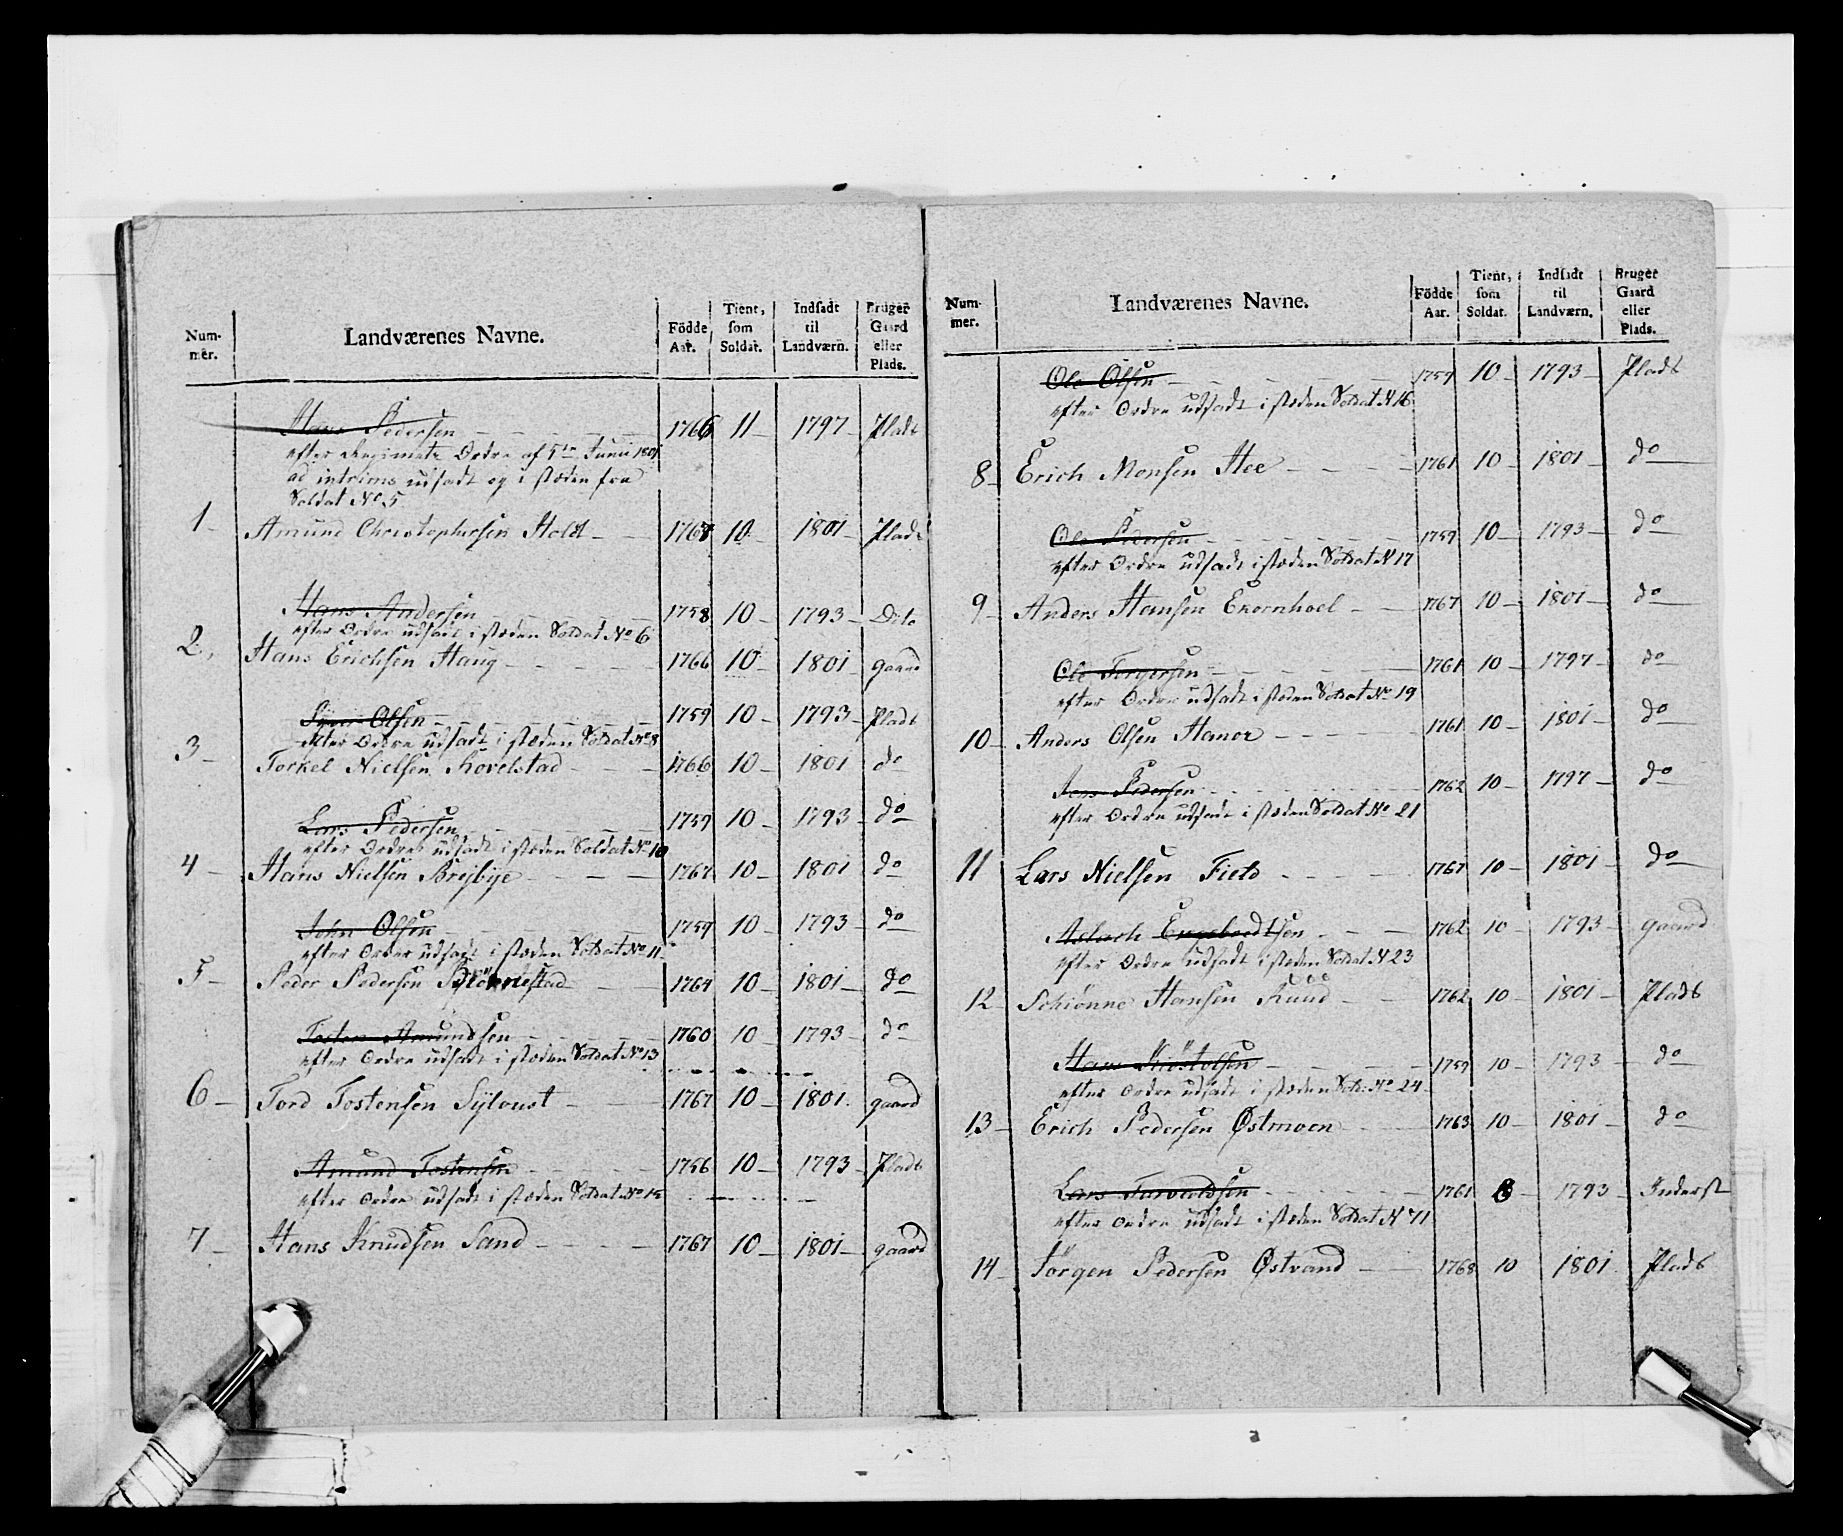 Num-
mer.
Landværenes Navne.
Födde
Aar.
Tient,
som
Soldat.
Indsadt
til
Landværn.
Bruger
Gaard
eller
Plads.
Hans Pedersen 1766 11 1797 Plads
efter Regiments Ordre af 5te Junii 1801
ad intrims udsadt og i stæden fra
Soldat No 5
1 Amund Christophersen Holdt 1768 10 1801 Plads
Hans Andersen 1758 10 1793 Dito
efter Ordre udsadt i stæden Soldat No 6
2 Hans Erichsen Haug 1766 10 1801 gaard
Olsen 1759 10 1793 Plads
efter Ordre udsadt i stæden Soldat No 8
3 Torkel Nielsen 1766 10 1801 do
Lars Pedersen 1759 10 1793 do
efter Ordre udsadt i stæden Soldat No 10
4 Hans Nielsen Brejbye 1767 10 1801 do
John Olsen 1759 10 1793 do
efter Ordre udsadt i stæden Soldat No 11
5 Peder Pedersen 1764 10 1801 do
Tosten Amundsen 1760 10 1793 do
efter Ordre udsadt i stæden Soldat No 13
6 Tord Tostensen 1767 10 1801 gaard
Amund Tostensen 1756 10 1793 Plads
efter Ordre udsadt i stæden Soldat No
7 Hans Knudsen Sand 1767 10 1801 gaard
Num-
mer.
Landværenes Navne.
Födde
Aar.
Tient,
som
Soldat.
Indsadt
til
Landværn.
Bruger
Gaard
eller
Plads.
Ole Olsen 1759 10 1793 Plads
efter Ordre udsadt i stæden Soldat N 16
8 Erich Monsen Hee 1761 10 1801 do
Ole Pedersen 1759 10 1793 do
efter Ordre udsadt i stæden Soldat N 17
9 Anders Hansen Ekornhoel 1767 10 1801 do
Ole Torgersen 1761 10 1797 do
efter Ordre udsadt i stæden Soldat No 19
10 Anders Olsen Hanor 1761 10 1801 do
Jens Pedersen 1762 10 1797 do
efter Ordre udsadt i stæden Soldat No 21
11 Lars Nielsen Field 1767 10 1801 do
Aslach Engebredtsen 1762 10 1793 gaard
efter Ordre udsadt i stæden Soldat N 23
12 Schiønne Hansen Ruud 1762 10 1801 Plads
Hans Kiöstolsen 1759 10 1793 do
efter Ordre udsadt i stæden Sold: No 24
13 Erich Pedersen Østmoen 1763 10 1801 do
Lars 1761 8 1793 Inderst
efter ordre udsadt i stæden Soldat N 71
14 Jörgen Pedersen Østvand 1768 10 1801 Plads